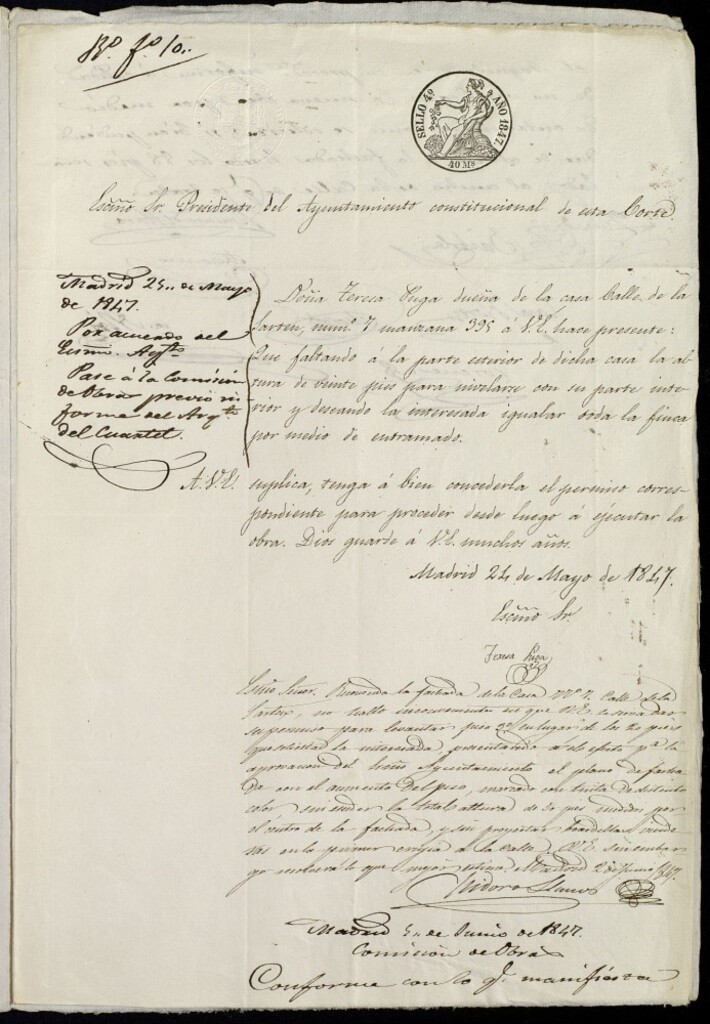 Rº fº 10..
SELLO 4º AÑO 1847
40 Ms
Escmo Sr. Presidente del Ayuntamiento constitucional de esta Corte.
Madrid 25.. de Mayo
de 1847.
Por acuerdo del
Escmo. Aytº
Pase á la Comision
de Obras previo in-
forme del Arqto
del Cuartel.
Doña Teresa Puga dueña de la casa Calle de la
Sarten, numº 7 manzana 395 á V.E. hace presente:
Que faltando á la parte esterior de dicha casa la al-
tura de veinte pies para nivelarse con su parte inte-
rior y deseando la interesada igualar toda la finca
por medio de entramado.
A. V.E. suplica, tenga á bien concederla el permiso corres-
pondiente para proceder desde luego á ejecutar la
obra. Dios guarde á V.E. muchos años.
Madrid 24 de Mayo de 1847.
Escmo Sr.
Teresa Puga
Escmo Señor. Reconocida la fachada de la Casa Nº 7. Calle de la
Sarten, no hallo inconveniente en que V.E. se sirva dar
su permiso para levantar pies en lugar de los 20 pies
que solicita la interesada, presentando a este efecto pª la
aprovacion del Escmo Ayuntamiento el plano de facha-
da con el aumento del piso, marcado con tinta de distinto
color sin esceder la total altura de 50 pies medidos por
el centro de la fachada, y sin proyectar
en lo primero a la Calle. V.E. sin embar-
go resolverá lo que mejor estime. Madrid 2 de Junio 1847.
Isidoro Llanos
Madrid 5.. de Junio de 1847.
Comision de Obras
Conforme con lo q. manifiesta